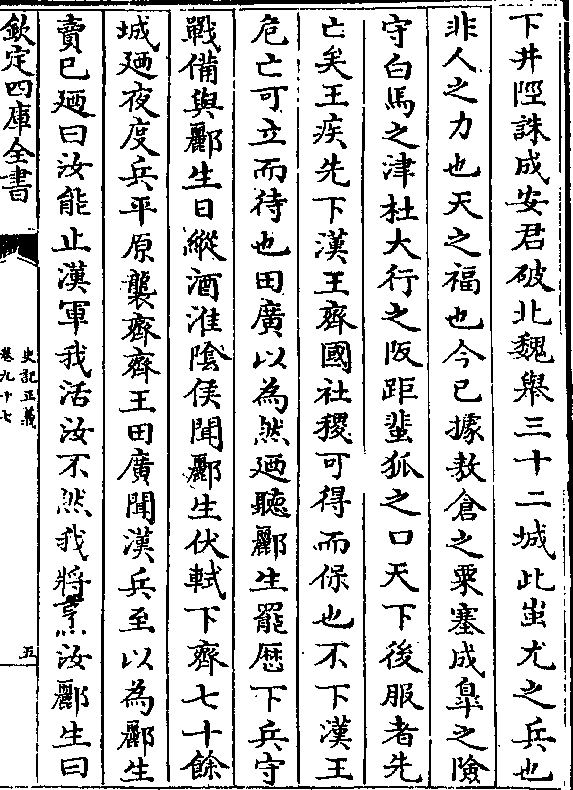 下井陘誅成安君破北魏舉三十二城此蚩尤之兵也
非人之力也天之福也今已據敖倉之粟塞成臯之險
守白馬之津杜大行之阪距蜚狐之口天下後服者先
亡矣王疾先下漢王齊國社稷可得而保也不下漢王
危亡可立而待也田廣以為然廼聽酈生罷厯下兵守
戰備與酈生日縱酒淮隂侯聞酈生伏軾下齊七十餘
城廼夜度兵平原襲齊齊王田廣聞漢兵至以為酈生
賣已廼曰汝能止漢軍我活汝不然我將烹汝酈生曰
欽定四庫全書
史記正義
卷九十七
五